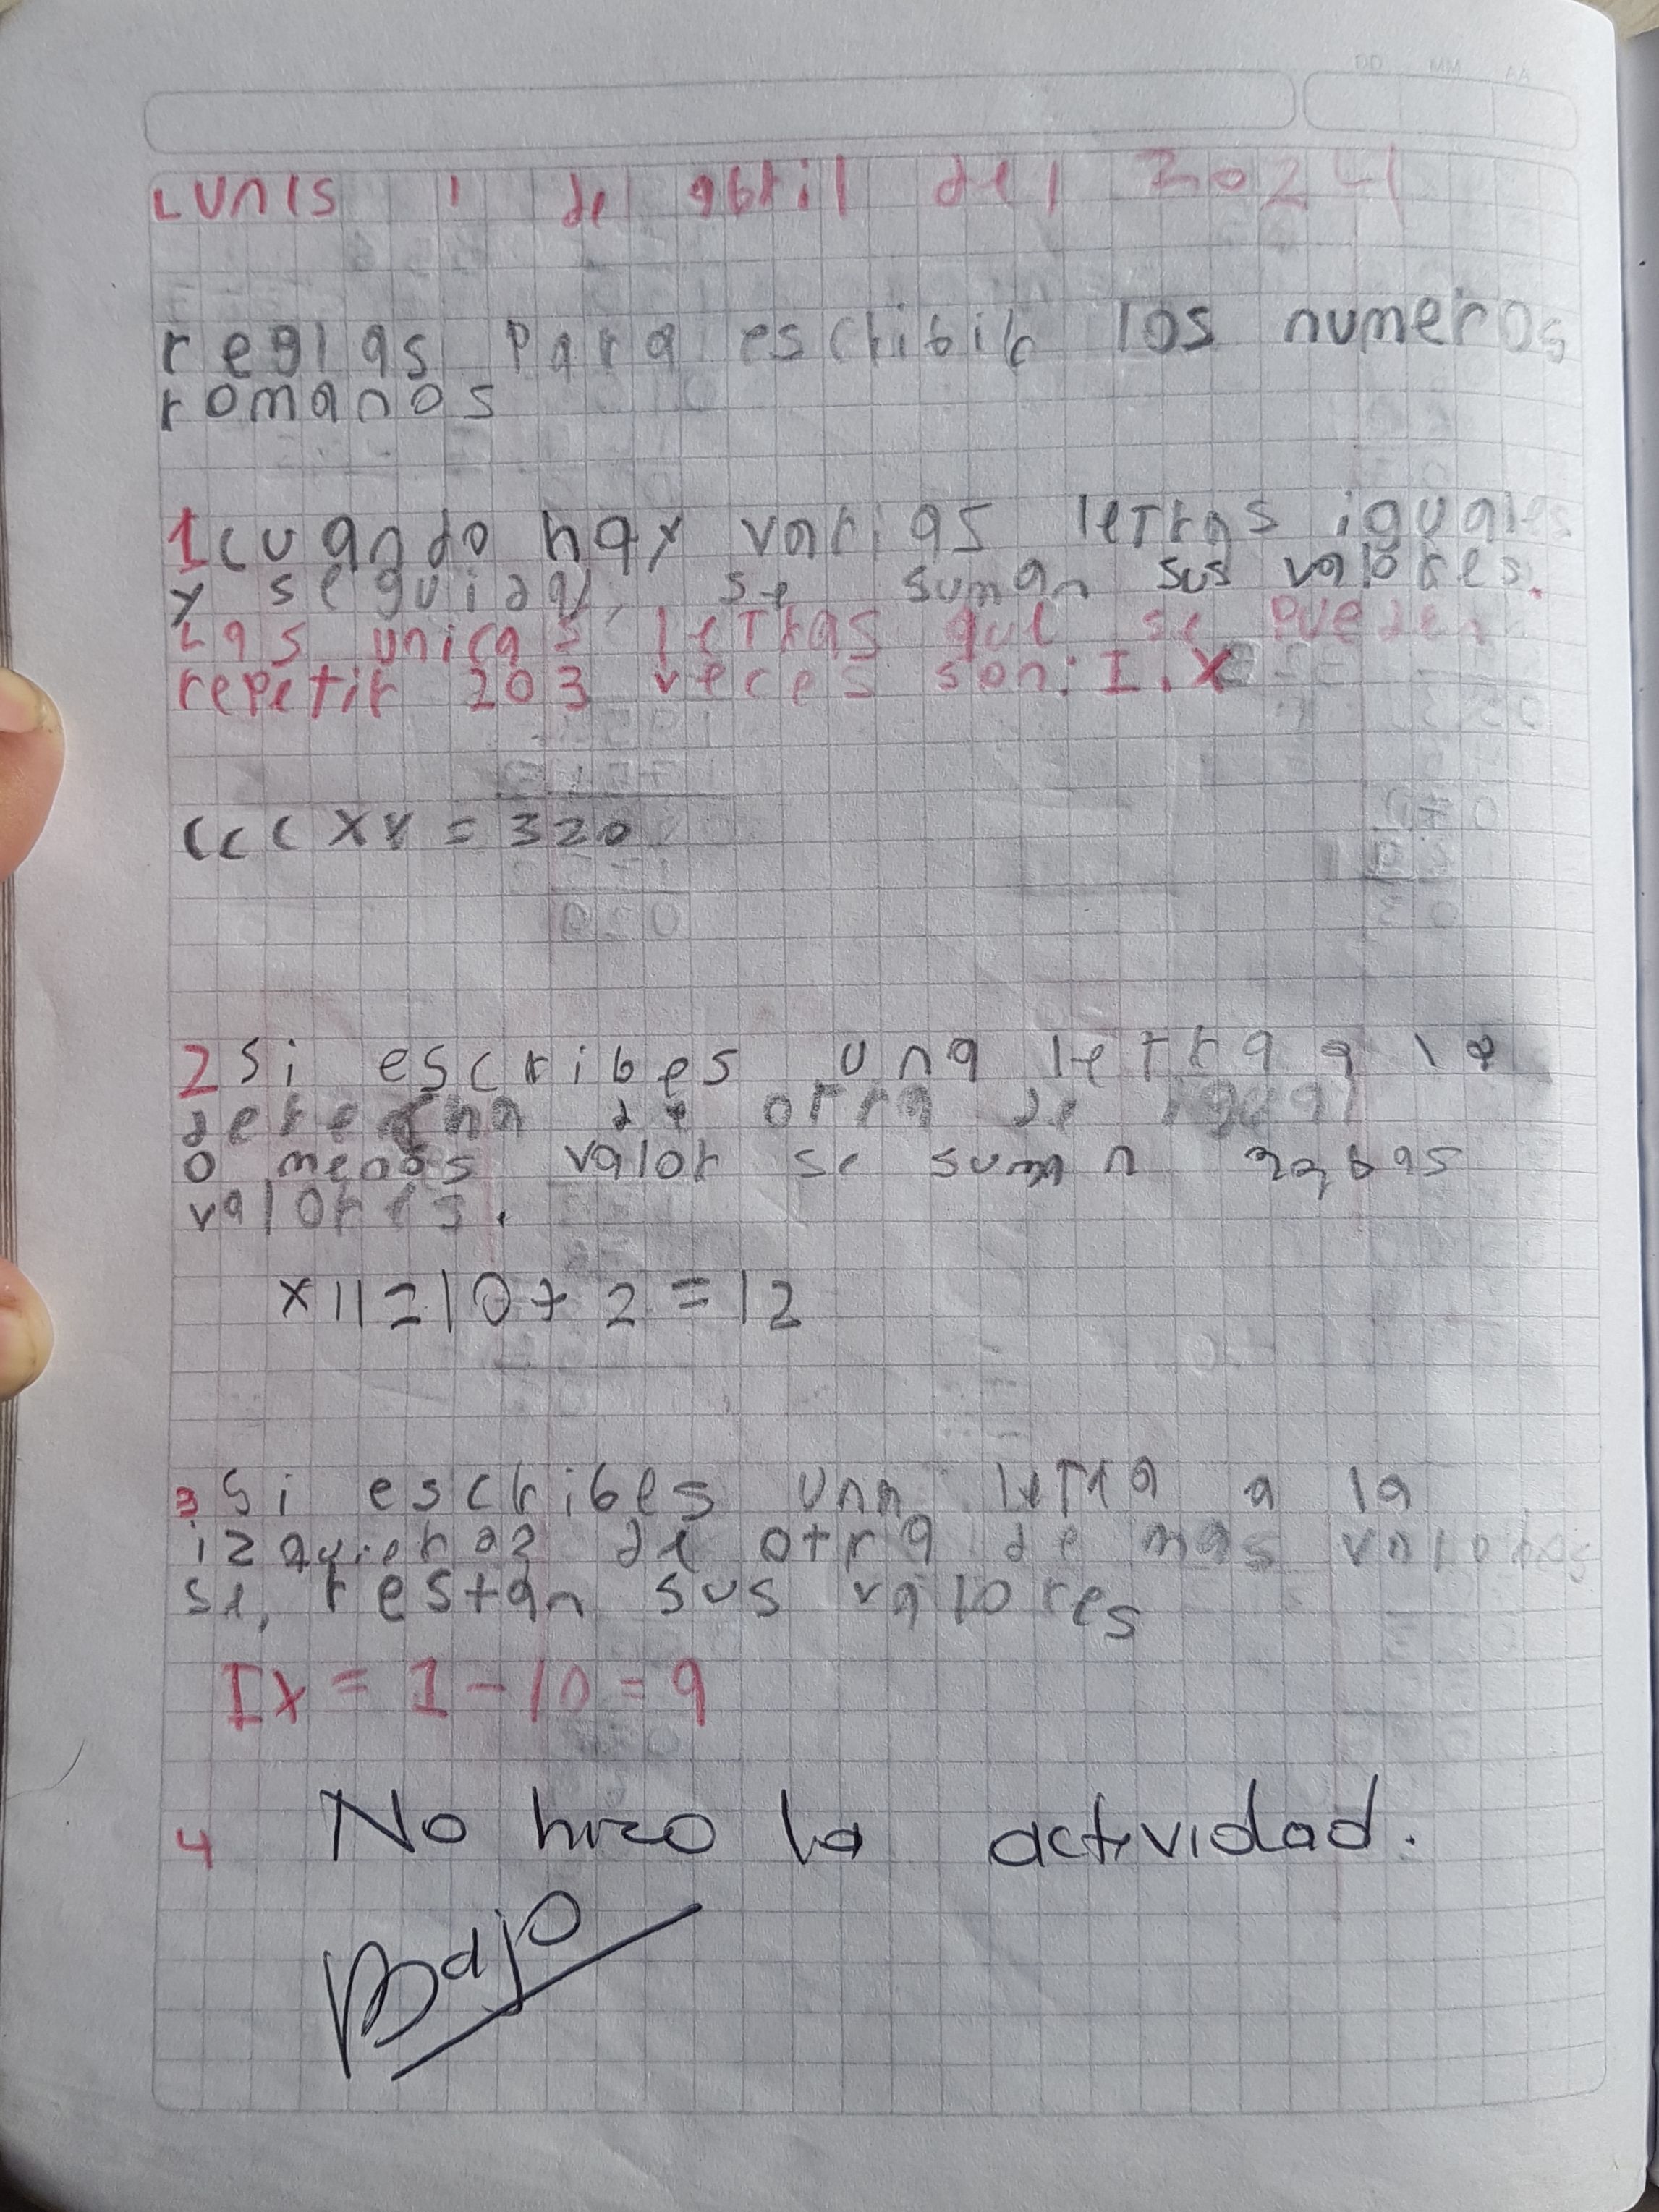 DD MM AA
LUNES 1 de abril del 2024
reglas para escribir los numeros
romanos
1 cuando hay varias letras iguales
y seguidas, se suman sus valores.
Las unicas letras que se pueden
repetir 2 o 3 veces son: I. X
CCC XX = 320
2 Si escribes una letra a la
derecha de otra de igual
o menos valor se suman
valores.
XII = 10 + 2 = 12
3 Si escribes una letra a la
de otra de mas
se, restan sus valores
IX = 1 - 10 = 9
4 No hizo la actividad.
Bajo